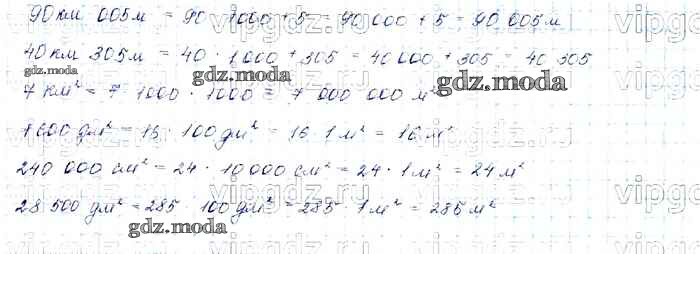 90 км 005 м = 90 · 1000 + 5 = 90 000 + 5 = 90 005 м
40 км 305 м = 40 · 1 000 + 305 = 40 000 + 305 = 40 305
gdz.moda
gdz.moda
7 км² = 7 · 1000 · 1000 = 7 000 000 м²
1600 дм² = 16 · 100 дм² = 16 · 1 м² = 16 м²
240 000 см² = 24 · 10 000 см² = 24 · 1 м² = 24 м²
28 500 дм² = 285 · 100 дм² = 285 · 1 м² = 285 м²
gdz.moda
vipgdz.ru
vipgdz.ru
vipgdz.ru